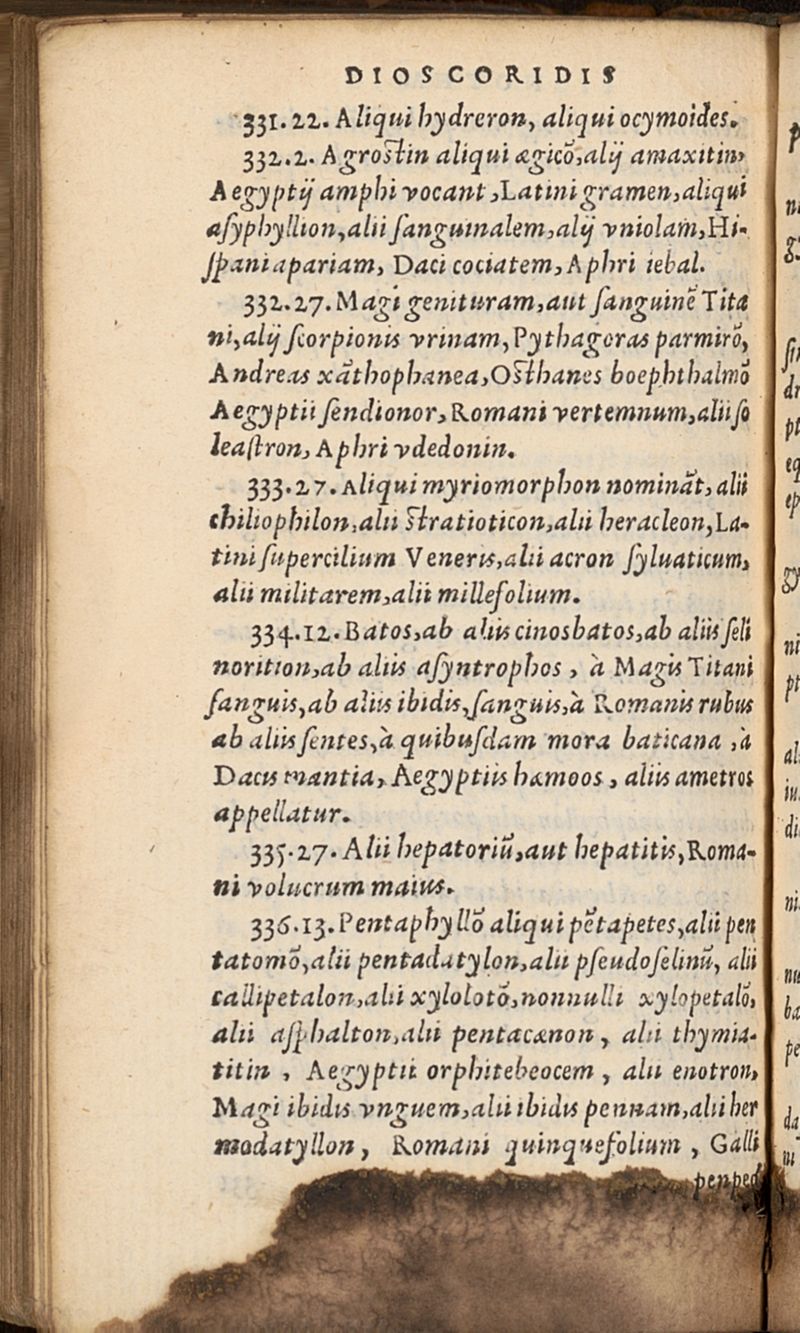 DIOSCORIDIS
331.22. Aliqui hydreron, aliqui ocymoides.
332.2. Agrostin aliqui ægicõ, alij amaxitin,
Aegyptij amphi vocant, Latini gramen, aliqui
asyphyllion, alii sanguinalem, alij vniolam, Hi-
spani apariam, Daci cociatem, Aphri iebal.
332.27. Magi genituram, aut sanguinẽ Tita
ni, alij scorpionis vrinam, Pythagoras parmirõ,
Andreas xãthophanea, Osthanes boephthalmõ
Aegyptii sendionor, Romani vertemnum, alii so
leastron, Aphri vdedonin.
333.27. Aliqui myriomorphon nominãt, alii
chiliophilon, alii stratioticon, alii heracleon, La-
tini supercilium Veneris, alii acron syluaticum,
alii militarem, alii millefolium.
334.12. Batos, ab aliis cinosbatos, ab aliis seli
norition, ab aliis asyntrophos, à Magis Titani
sanguis, ab aliis ibidis, sanguis, à Romanis rubus
ab aliis sentes, à quibusdam mora baticana, à
Dacis mantia, Aegyptiis hæmoos, aliis ametros
appellatur.
335.27. Alii hepatoriũ, aut hepatitis, Roma-
ni volucrum maius.
336.13. Pentaphyllõ aliqui pẽtapetes, alii pen
tatomõ, alii pentadatylon, alii pseudoselinũ, alii
callipetalon, alii xylolotõ, nonnulli xylopetalõ,
alii asphalton, alii pentacænon, alii thymia-
titin, Aegyptii orphitebeocem, alii enotron,
Magi ibidis vnguem, alii ibidis pennam, alii her
modatyllon, Romani quinquefolium, Galli